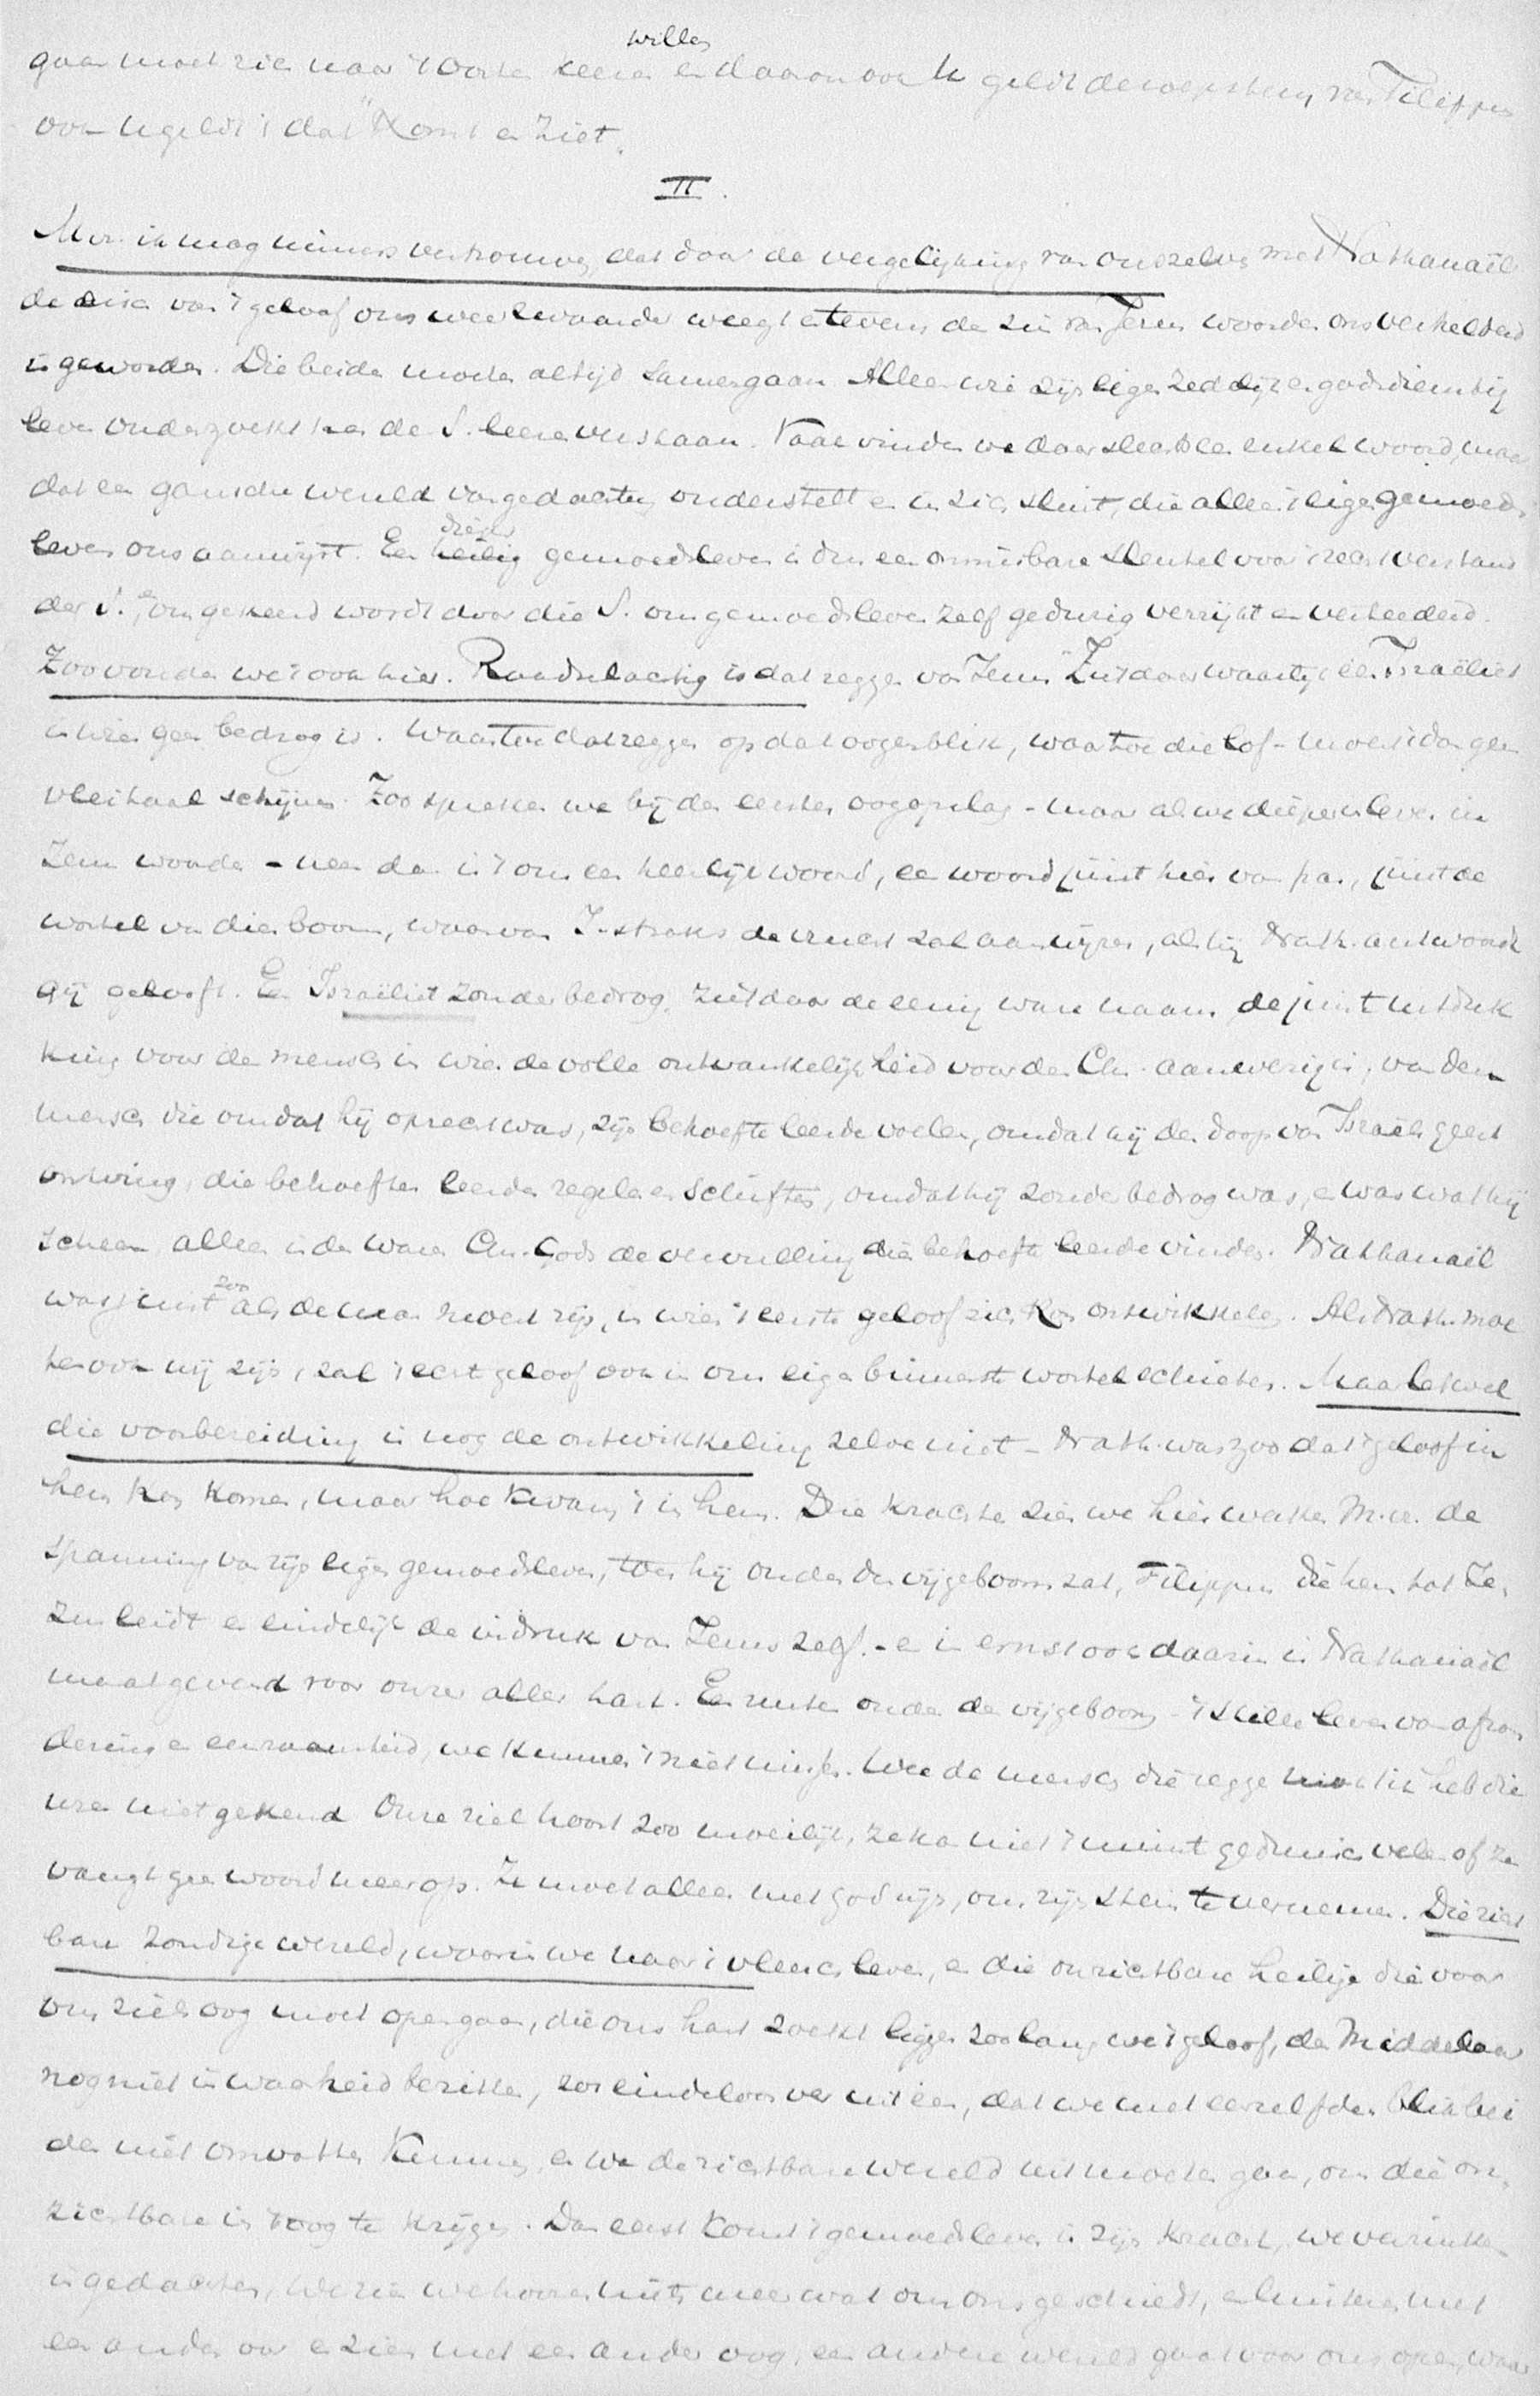 gaan moet zien naar 't Oosten willen keeren en daarom ook U geldt de roepstem van Filippus
ook U geldt 't dat "Komt en Ziet".
II.
M.v. ik mag immers vertrouwen, dat door de vergelijking van onszelve met Nathanaël
de eisch van 't geloof ons weer zwaarder weegt en tevens de zin van Jezus woorden ons verhelderd
is geworden. Die beide moeten altijd samengaan. Alleen wie zijn eigen zedelijk en godsdienstig
leven onderzoekt kan de S. leeren verstaan. Vaak vinden we daar slechts een enkel woord, maar
dat een gansche wereld van gedachten onderstelt en in zich sluit, die alleen 't eigen gemoeds
leven ons aanwijst. Een dieper heilig gemoedsleven is dus een onmisbare sleutel voor 't recht verstand
der S. en omgekeerd wordt door die S. ons gemoedsleven zelf gedurig verrijkt en verhelderd.
Zoo vonden we 't ook hier. Raadselachtig is dat zeggen van Jezus "Zie daar waarlijk een Israëliet
in wien geen bedrog is. Waartoe dat zeggen op dat oogenblik, waartoe die lof - moest 't dan geen
vleitaal schijnen. Zoo spreken we bij den eersten oogopslag - maar als we dieper inleven in
Jezus woorden - neen dan is 't ons een heerlijk woord, een woord juist hier van pas, juist de
wortel van dien boom, waarvan J. straks de vrucht zal aanwijzen, als hij Nath. antwoordt
gij gelooft. Een Israëliet zonder bedrog, zie daar de eenig ware naam, de juiste uitdruk
king voor de mensch in wien de volle ontvankelijkheid voor den Chr. aanwezig is, van den
mensch die omdat hij oprecht was, zijn behoefte leerde voelen, omdat hij den doop van Israëls geest
ontving, die behoeften leerde regelen en schiften, omdat hij zonder bedrog was, en was wat hij
scheen, alleen in den waren Chr. Gods de vervulling dier behoefte leerde vinden. Nathanaël
was juist zoo als de man moest zijn, in wien 't eerste geloof zich kon ontwikkelen. Als Nath. moe
ten ook wij zijn, zal 't echt geloof ook in ons eigen binnenste wortel schieten. Maar ietwel
die voorbereiding is nog de ontwikkeling zelve niet - Nath. was zoo dat 't geloof in
hem kon komen, maar hoe kwam 't in hem. Drie krachten zien we hier werken M.v. de
spanning van zijn eigen gemoedsleven, toen hij onder den vijgeboom zat, Filippus die hem tot Je,
zus leidt en eindelijk de indruk van Jezus zelf. - en in ernst ook daarin is Nathanaël
maatgevend voor onzer aller hart. Een rusten onder de vijgeboom - 't stille leven van afzon
dering en eenzaamheid, we kunnen 't niet missen. Wee de mensch die zeggen moet ik heb die
uren niet gekend. Onze ziel hoort zoo moeilijk, ze kan niet 't minst gedruisch velen of ze
vangt geen woord meer op. Ze moet alleen met God zijn, om zijn stem te vernemen. Die zicht
bare zondige wereld, waarin we naar 't vleesch leven, en die onzichtbare heilige die voor
ons ziels oog moet opengaan, die ons hart zoekt liggen zoolang we 't geloof, den Middelaar
nog niet in waarheid bezitten, zoo eindeloos ver uit een, dat we met eenzelfden blik bei
den niet omvatten kunnen, en we de zichtbare wereld uit moeten gaan, om die on,
zichtbare in 't oog te krijgen. Dan eerst komt 't gemoedsleven in zijn kracht, we verzinken
in gedachten, we zien we hooren niets meer wat om ons geschiedt, en luisteren met
een ander oor en zien met een ander oog, een andere wereld gaat voor ons open, waar